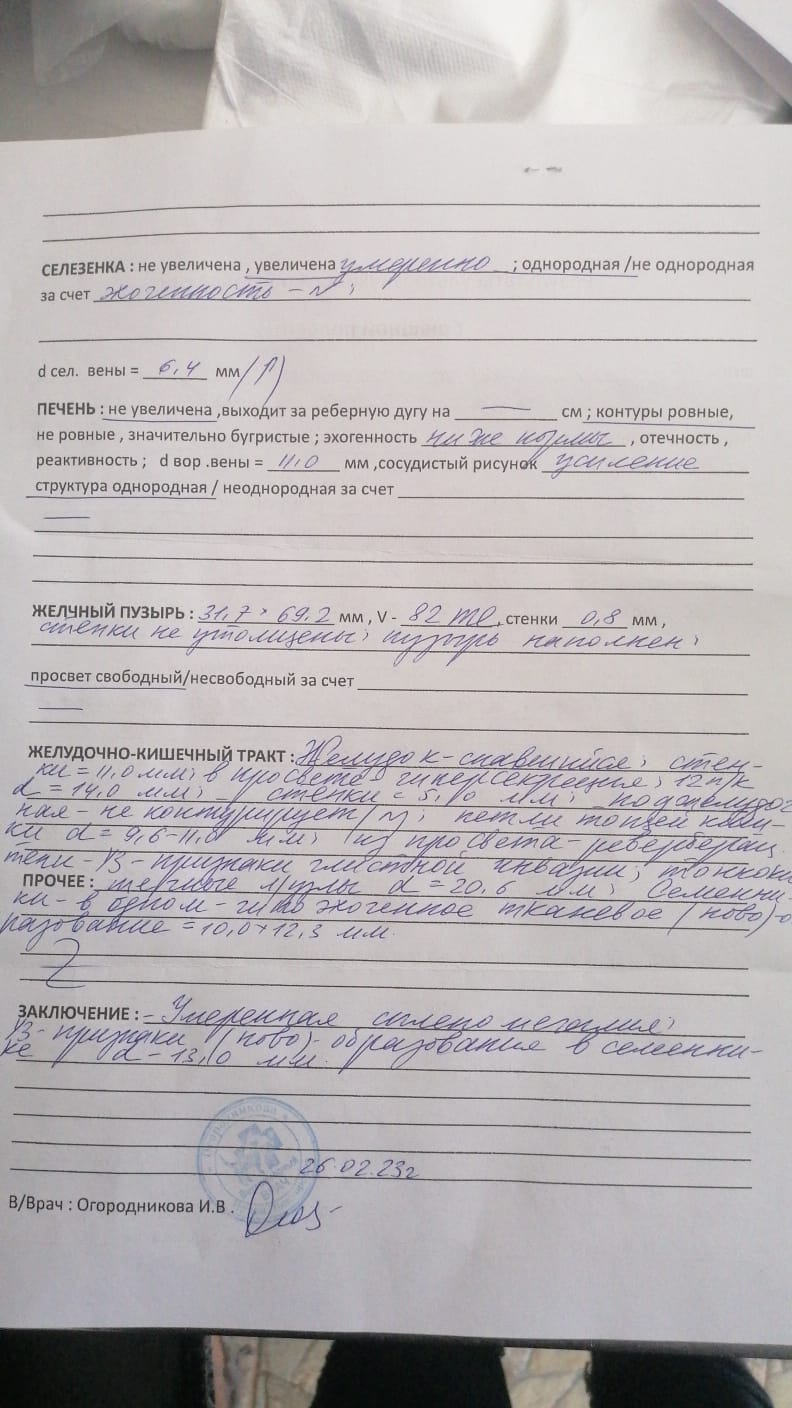 СЕЛЕЗЕНКА : не увеличена , увеличена умеренно ; однородная /не однородная
за счет эхогенность - N ;
d сел. вены = 6,4 мм
ПЕЧЕНЬ : не увеличена ,выходит за реберную дугу на — см ; контуры ровные,
не ровные , значительно бугристые ; эхогенность ниже нормы , отечность ,
реактивность ; d вор .вены = 11,0 мм ,сосудистый рисунок усиление
структура однородная / неоднородная за счет
—
ЖЕЛЧНЫЙ ПУЗЫРЬ : 31,7 × 69,2 мм , V - 82 ml , стенки 0,8 мм ,
стенки не утолщены; пузырь наполнен;
просвет свободный/несвободный за счет
—
ЖЕЛУДОЧНО-КИШЕЧНЫЙ ТРАКТ : Желудок - спавшийся; стен-
ки = 11,0 мм; в просвете - гиперсекреция; 12 п/к
d = 14,0 мм; стенки = 5,10 мм; поджелудоч
ная - не контурирует (N); петли тощей киш-
ки d = 9,6-11,0 мм; из просвета - ревербераци
тени - УЗ - признаки глистной инвазии; тонкоки
ПРОЧЕЕ : шечные л/узлы d = 20,6 мм; Семенни-
ки - в одном - гипоэхогенное тканевое (ново)-о
разование = 10,0 × 12,3 мм.
ЗАКЛЮЧЕНИЕ : - Умеренная спленомегалия;
УЗ - признаки (ново)-образования в семенни-
ке d - 13,0 мм.
26.02.23г
В/Врач : Огородникова И.В .